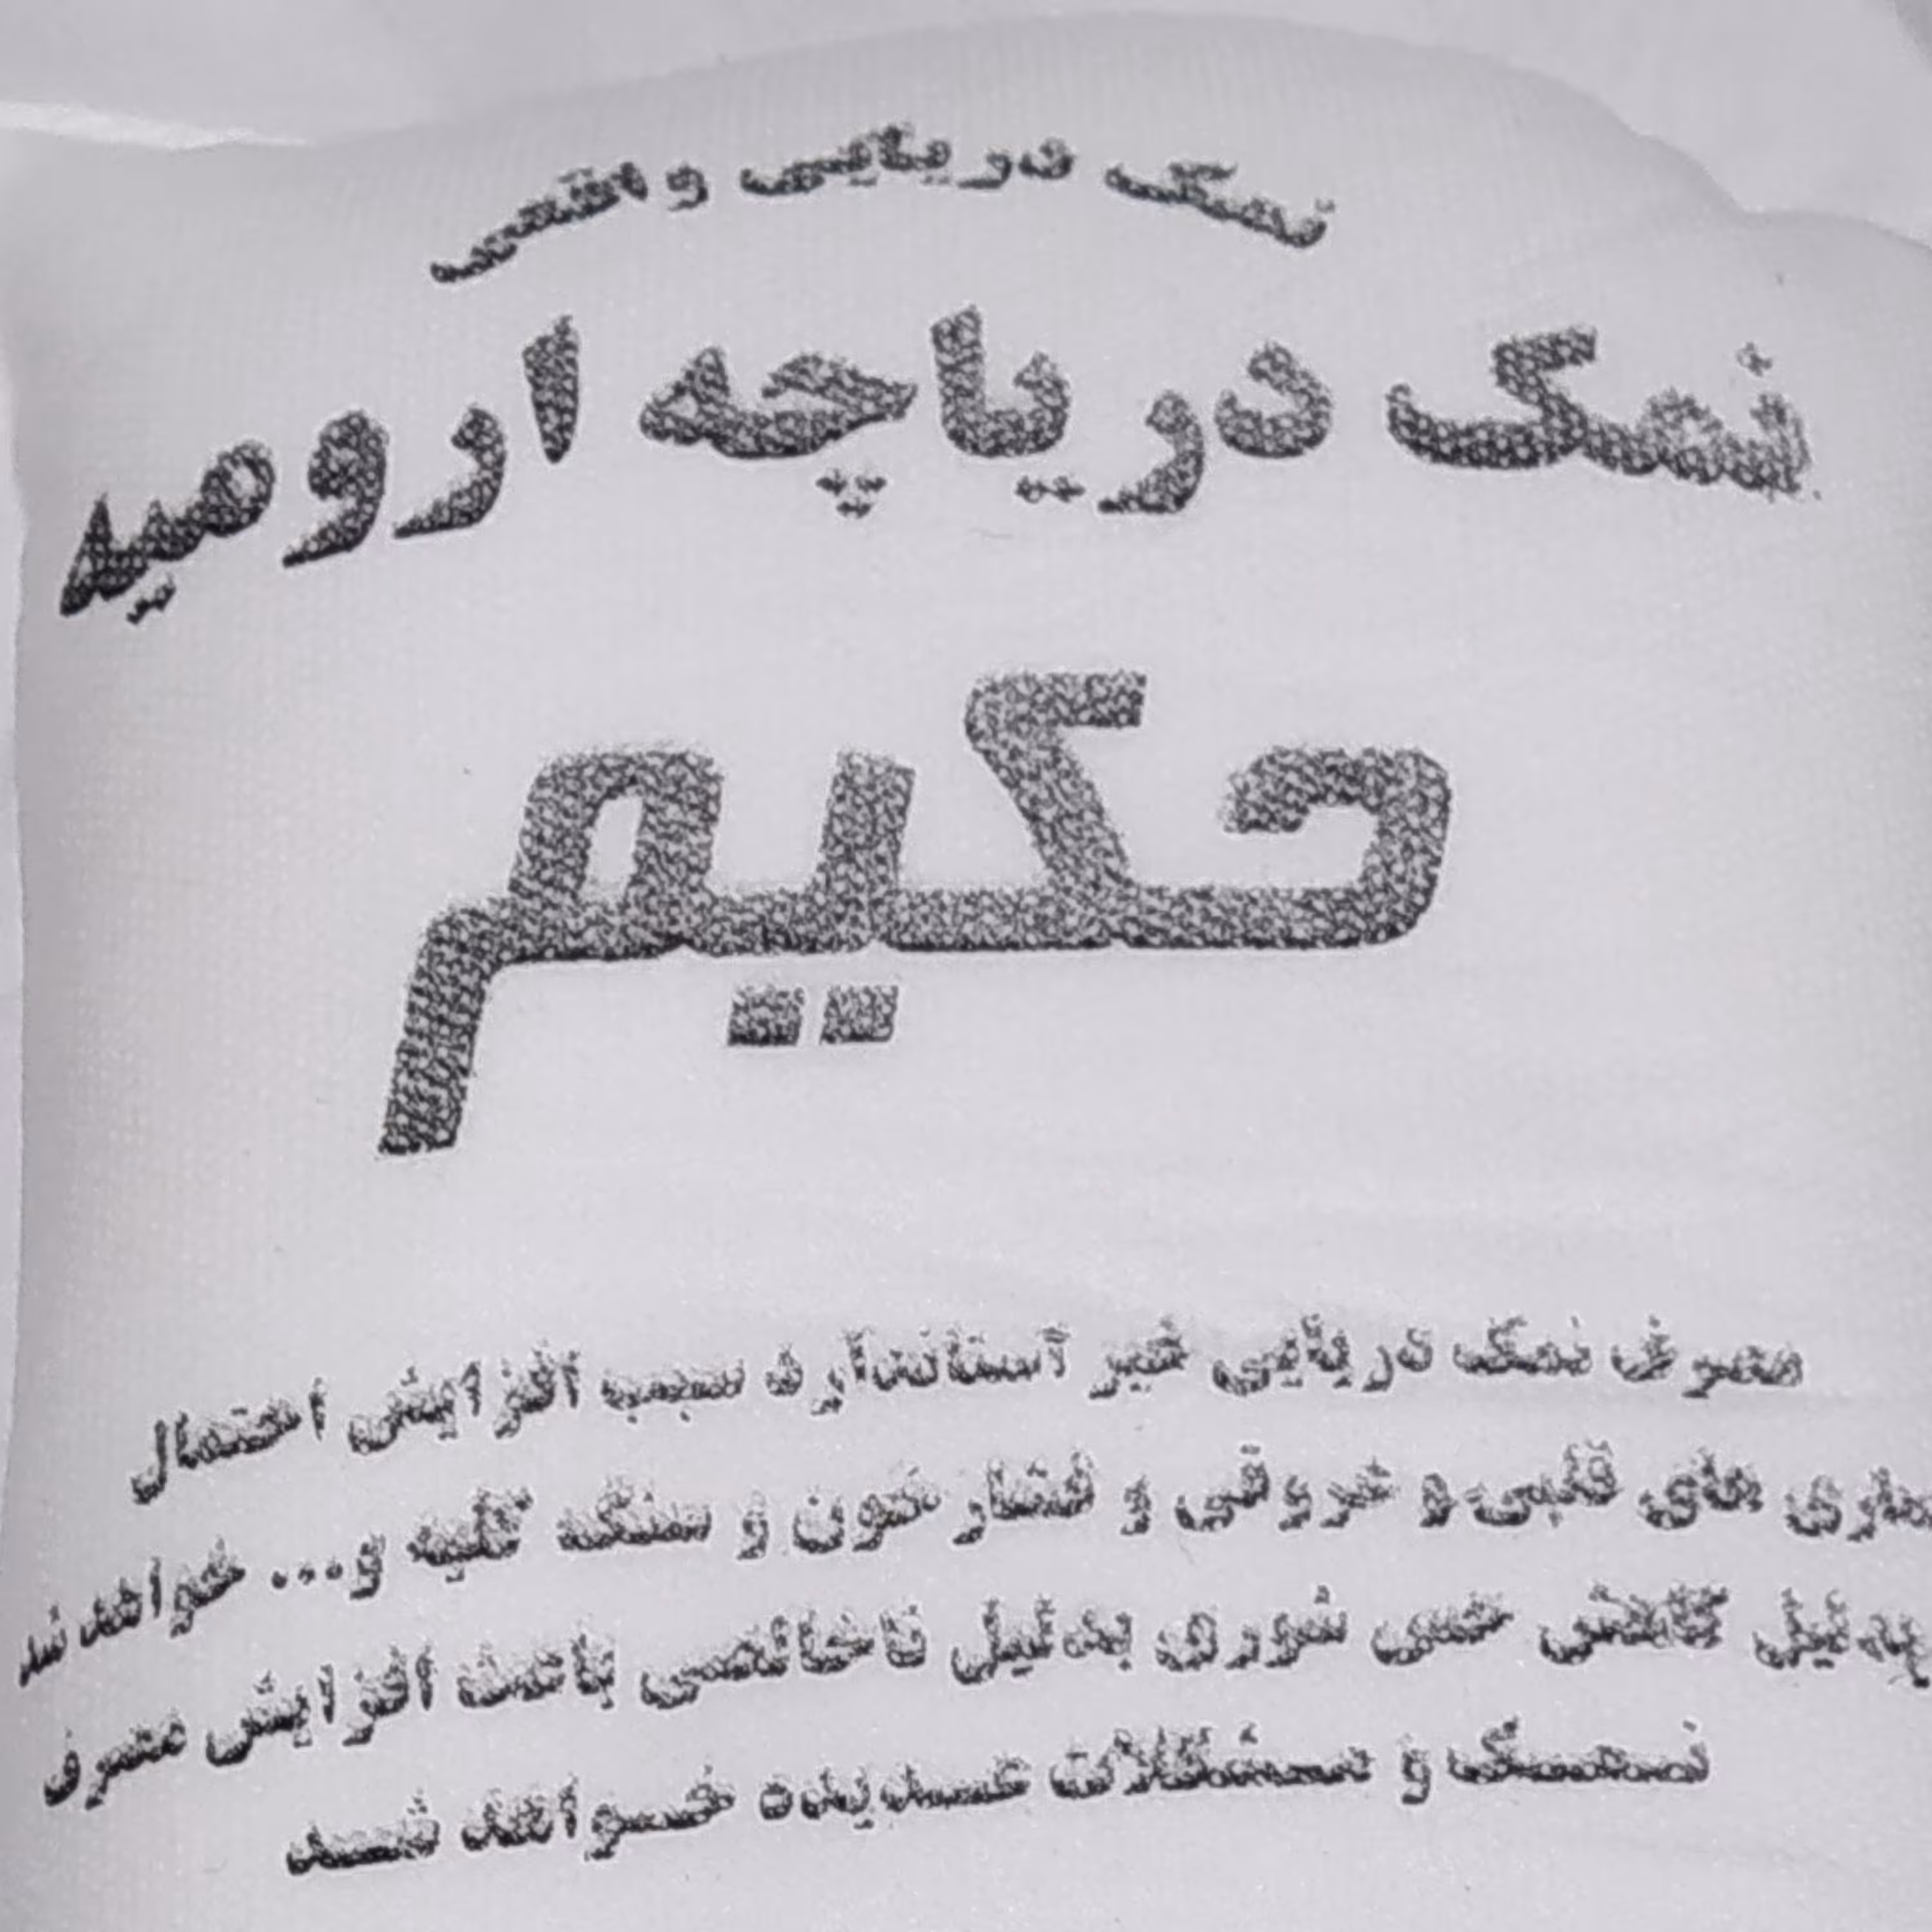 نمک دریایی و اقصر
نمک دریاچه ارومیه
حکیم
مصرف نمک دریایی غیر استاندارد سبب افزایش احتمال
های قلبی و عروقی و فشار خون و سنگ کلیه و... خواهد شد
بدلیل کاهش حس شوری بدلیل ناخالصی باعث افزایش مصرف
نمک و مشکلات عدیده خواهد شد